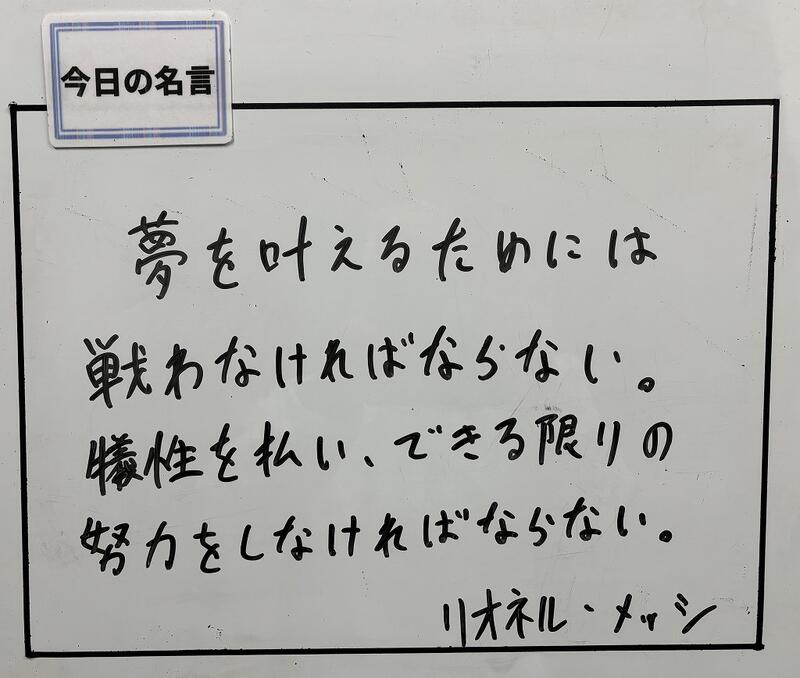 今日の名言
夢を叶えるためには
戦わなければならない。
犠牲を払い、できる限りの
努力をしなければならない。
リオネル・メッシ